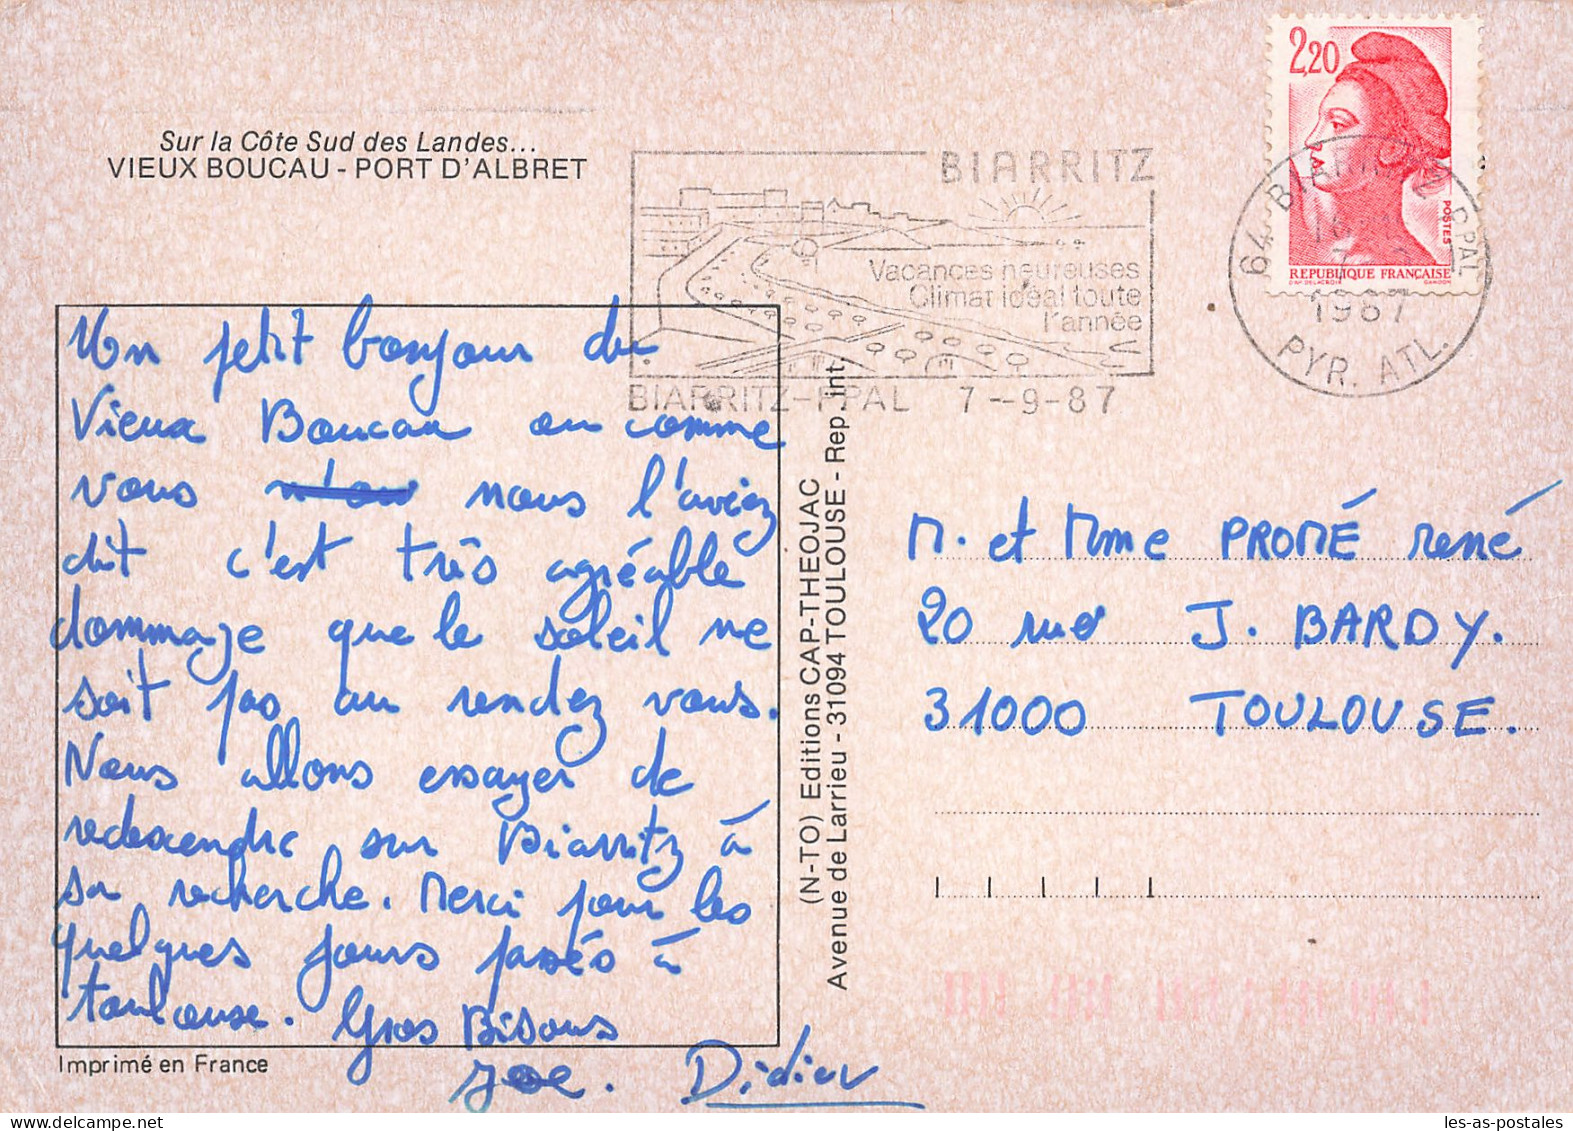 Sur la Côte Sud des Landes...
VIEUX BOUCAU - PORT D'ALBRET
2,20
POSTES
REPUBLIQUE FRANÇAISE
D'AP. DELACROIX GANDON
BIARRITZ
Vacances heureuses
Climat idéal toute
l'année
BIARRITZ-PPAL 7-9-87
64 BIARRITZ PPAL
1987
PYR. ATL.
Un petit bonjour du
Vieux Boucau ou comme
vous nous l'aviez
dit c'est très agréable
dommage que le soleil ne
soit pas au rendez vous.
Nous allons essayer de
redescendre sur Biarritz à
sa recherche. Merci pour les
quelques jours passés à
toulouse. Gros Bisous
Joe. Didier
Imprimé en France
(N-TO) Editions CAP-THEOJAC
Avenue de Larrieu - 31094 TOULOUSE - Rep. int.
M. et Mme PROMÉ René
20 rue J. BARDY.
31000 TOULOUSE.
delcampe.net
les-as-postales